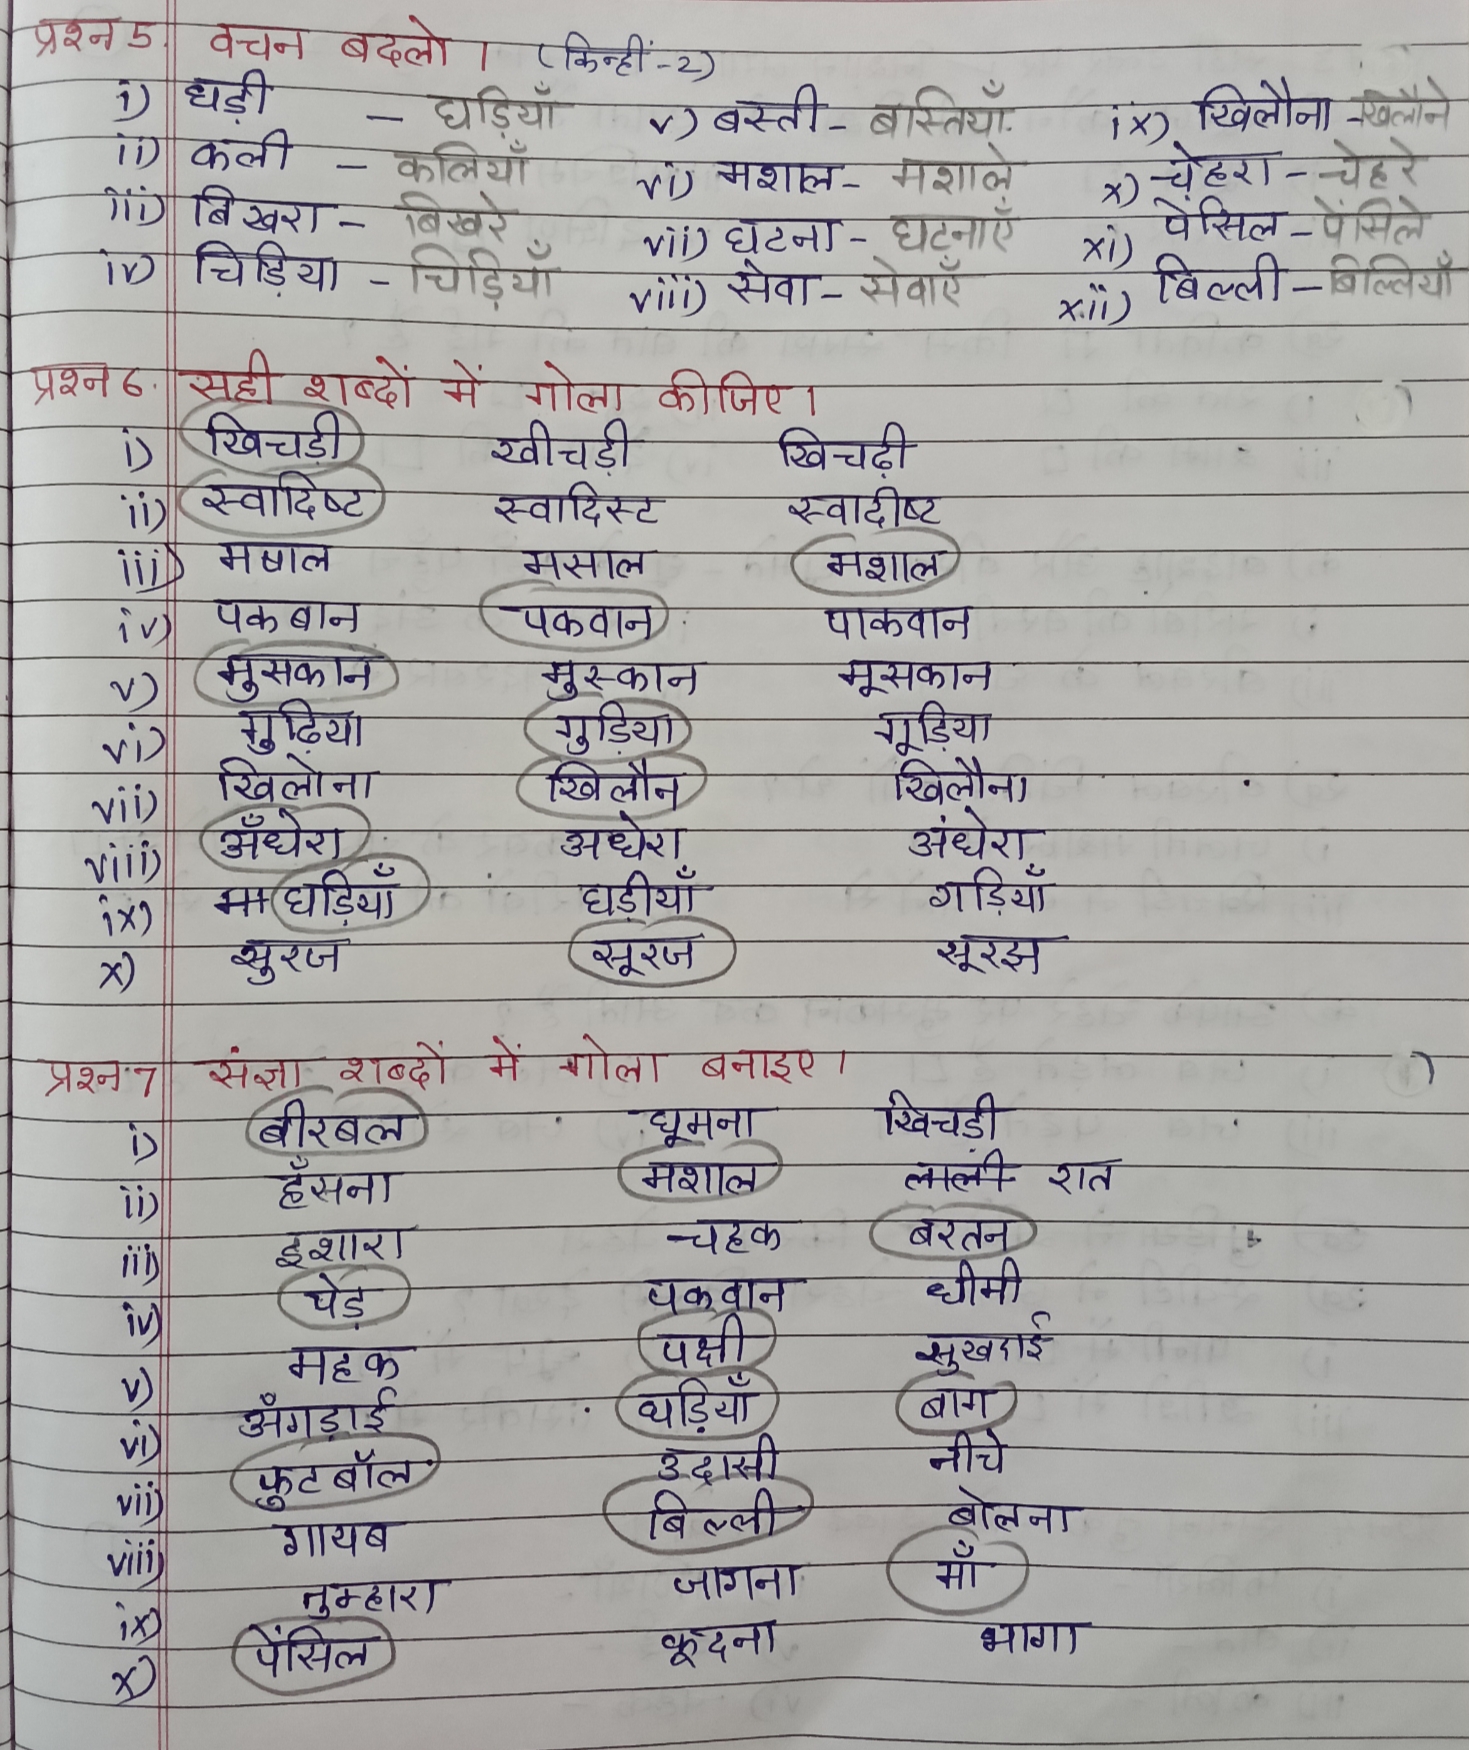 प्रश्न 5. वचन बदलो। (किन्हीं-2)
i) घड़ी - घड़ियाँ v) बस्ती - बस्तियाँ ix) खिलौना - खिलौने
ii) कली - कलियाँ vi) मशाल - मशाले x) चेहरा - चेहरे
iii) बिखरा - बिखरे vii) घटना - घटनाएँ xi) पेंसिल - पेंसिले
iv) चिड़िया - चिड़ियाँ viii) सेवा - सेवाएँ xii) बिल्ली - बिल्लियाँ
प्रश्न 6. सही शब्दों में गोला कीजिए।
i) खिचड़ी खीचड़ी खिचढ़ी
ii) स्वादिष्ट स्वादिस्ट स्वादीष्ट
iii) मषाल मसाल मशाल
iv) पकबान पकवान पाकवान
v) मुसकान मुस्कान मूसकान
vi) गुढ़िया गुड़िया गूड़िया
vii) खिलोना खिलौन खिलौना
viii) अँधेरा अधेरा अंधेरा
ix) घड़ियाँ घड़ीयाँ गड़ियाँ
x) सुरज सूरज सूरझ
प्रश्न 7 संज्ञा शब्दों में गोला बनाइए।
i) बीरबल घूमना खिचड़ी
ii) हँसना मशाल लाली रात
iii) इशारा चहक बरतन
iv) पेड़ पकवान धीमी
v) महक पक्षी सुखदाई
vi) अँगड़ाई घड़ियाँ बाग
vii) फुटबॉल उदासी नीचे
viii) गायब बिल्ली बोलना
ix) तुम्हारा जागना माँ
x) पेंसिल कूदना भागा